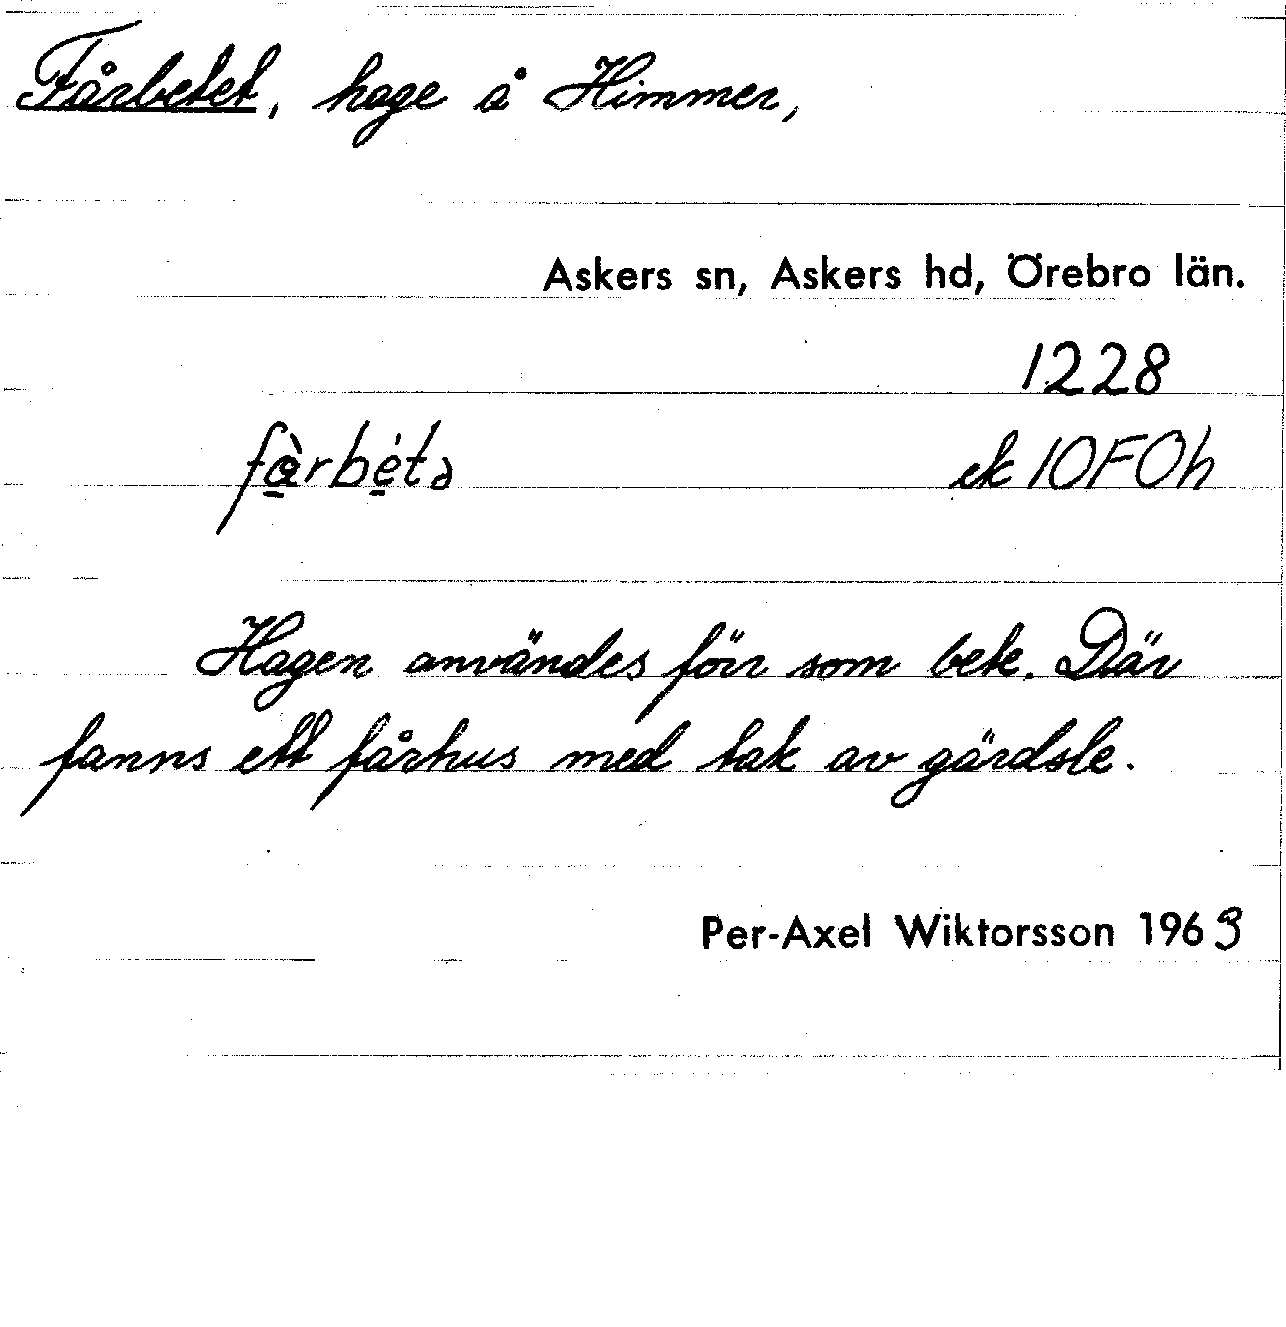 Fårbetet, hage å Himmer,
Askers sn, Askers hd, Örebro län.
1228
fàrbétə ek 10F0h
Hagen användes förr som bete. Där
fanns ett fårhus med tak av gärdsle.
Per-Axel Wiktorsson 1963